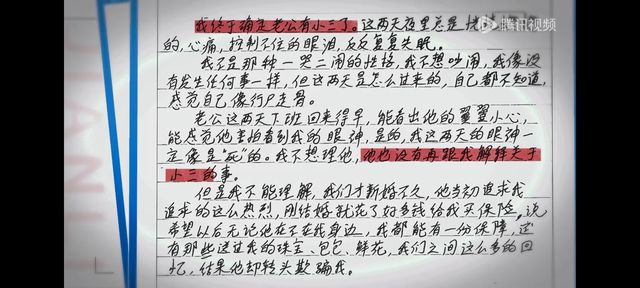 腾讯视频
我终于确定老公有小三了。这两天夜里总是
的，心痛，控制不住的眼泪，反反复复失眠。
我不是那种一哭二闹的性格，我不想吵闹，我像没
有发生任何事一样，但这两天是怎么过来的，自己都不知道，
感觉自己像行尸走骨。
老公这两天下班回来得早，能看出他的翼翼小心，
能感觉他害怕看到我的眼神，是的，我这两天的眼神一
定像是“死”的。我不想理他，他也没有再跟我解释关于
小三的事。
但是我不能理解，我们才新婚不久，他当初追求我
追求的这么热烈，刚结婚就花了好多钱给我买保险，说
希望以后无论他在不在我身边，我都能有一份保障，还
有那些送过我的珠宝、包包、鲜花，我们之间这么多的回
忆，结果他却转头欺骗我。